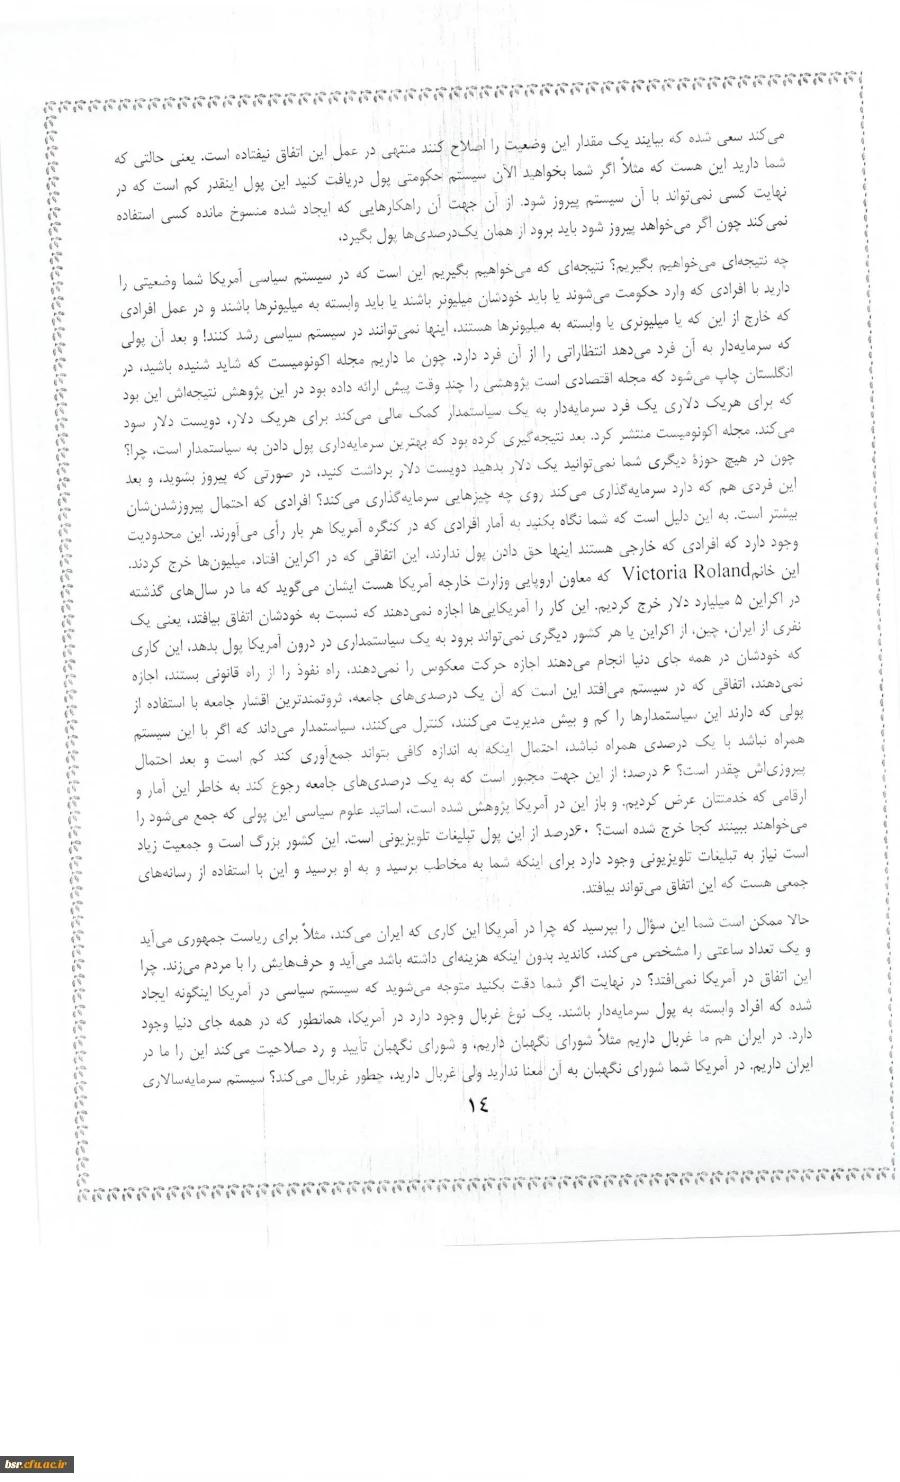 می‌کند سعی شده که بیایند یک مقدار این وضعیت را اصلاح کنند منتهی در عمل این اتفاق نیفتاده است. یعنی حالتی که
شما دارید این هست که مثلاً اگر شما بخواهید الآن سیستم حکومتی پول دریافت کنید این پول اینقدر کم است که در
نهایت کسی نمی‌تواند با آن سیستم پیروز شود. از آن جهت آن راهکارهایی که ایجاد شده منسوخ مانده کسی استفاده
نمی‌کند چون اگر می‌خواهد پیروز شود باید برود از همان یک‌درصدی‌ها پول بگیرد،
چه نتیجه‌ای می‌خواهیم بگیریم؟ نتیجه‌ای که می‌خواهیم بگیریم این است که در سیستم سیاسی آمریکا شما وضعیتی را
دارید با افرادی که وارد حکومت می‌شوند یا باید خودشان میلیونر باشند یا باید وابسته به میلیونرها باشند و در عمل افرادی
که خارج از این که یا میلیونری یا وابسته به میلیونرها هستند، اینها نمی‌توانند در سیستم سیاسی رشد کنند! و بعد آن پولی
که سرمایه‌دار به آن فرد می‌دهد انتظاراتی را از آن فرد دارد. چون ما داریم مجله اکونومیست که شاید شنیده باشید، در
انگلستان چاپ می‌شود که مجله اقتصادی است پژوهشی را چند وقت پیش ارائه داده بود در این پژوهش نتیجه‌اش این بود
که برای هریک دلاری یک فرد سرمایه‌دار به یک سیاستمدار کمک مالی می‌کند برای هریک دلار، دویست دلار سود
می‌کند. مجله اکونومیست منتشر کرد. بعد نتیجه‌گیری کرده بود که بهترین سرمایه‌داری پول دادن به سیاستمدار است، چرا؟
چون در هیچ حوزهٔ دیگری شما نمی‌توانید یک دلار بدهید دویست دلار برداشت کنید، در صورتی که پیروز بشوید، و بعد
این فردی هم که دارد سرمایه‌گذاری می‌کند روی چه چیزهایی سرمایه‌گذاری می‌کند؟ افرادی که احتمال پیروزشدن‌شان
بیشتر است. به این دلیل است که شما نگاه بکنید به آمار افرادی که در کنگره آمریکا هر بار رأی می‌آورند. این محدودیت
وجود دارد که افرادی که خارجی هستند اینها حق دادن پول ندارند، این اتفاقی که در اکراین افتاد، میلیون‌ها خرج کردند.
این خانم Victoria Roland که معاون اروپایی وزارت خارجه آمریکا هست ایشان می‌گوید که ما در سال‌های گذشته
در اکراین ۵ میلیارد دلار خرج کردیم. این کار را آمریکایی‌ها اجازه نمی‌دهند که نسبت به خودشان اتفاق بیافتد، یعنی یک
نفری از ایران، چین، از اکراین یا هر کشور دیگری نمی‌تواند برود به یک سیاستمداری در درون آمریکا پول بدهد، این کاری
که خودشان در همه جای دنیا انجام می‌دهند اجازه حرکت معکوس را نمی‌دهند، راه نفوذ را از راه قانونی بستند، اجازه
نمی‌دهند، اتفاقی که در سیستم می‌افتد این است که آن یک درصدی‌های جامعه، ثروتمندترین اقشار جامعه با استفاده از
پولی که دارند این سیاستمدارها را کم و بیش مدیریت می‌کنند، کنترل می‌کنند، سیاستمدار می‌داند که اگر با این سیستم
همراه نباشد با یک درصدی همراه نباشد، احتمال اینکه به اندازه کافی بتواند جمع‌آوری کند کم است و بعد احتمال
پیروزی‌اش چقدر است؟ ۶ درصد؛ از این جهت مجبور است که به یک درصدی‌های جامعه رجوع کند به خاطر این آمار و
ارقامی که خدمتتان عرض کردیم. و باز این در آمریکا پژوهش شده است، اساتید علوم سیاسی این پولی که جمع می‌شود را
می‌خواهند ببینند کجا خرج شده است؟ ۶۰درصد از این پول تبلیغات تلویزیونی است. این کشور بزرگ است و جمعیت زیاد
است نیاز به تبلیغات تلویزیونی وجود دارد برای اینکه شما به مخاطب برسید و به او برسید و این با استفاده از رسانه‌های
جمعی هست که این اتفاق می‌تواند بیافتد.
حالا ممکن است شما این سؤال را بپرسید که چرا در آمریکا این کاری که ایران می‌کند، مثلاً برای ریاست جمهوری می‌آید
و یک تعداد ساعتی را مشخص می‌کند، کاندید بدون اینکه هزینه‌ای داشته باشد می‌آید و حرف‌هایش را با مردم می‌زند. چرا
این اتفاق در آمریکا نمی‌افتد؟ در نهایت اگر شما دقت بکنید متوجه می‌شوید که سیستم سیاسی در آمریکا اینگونه ایجاد
شده که افراد وابسته به پول سرمایه‌دار باشند. یک نوع غربال وجود دارد در آمریکا، همانطور که در همه جای دنیا وجود
دارد. در ایران هم ما غربال داریم مثلاً شورای نگهبان داریم، و شورای نگهبان تأیید و رد صلاحیت می‌کند این را ما در
ایران داریم. در آمریکا شما شورای نگهبان به آن معنا ندارید ولی غربال دارید، چطور غربال می‌کند؟ سیستم سرمایه‌سالاری
١٤
bsr.cfu.ac.ir